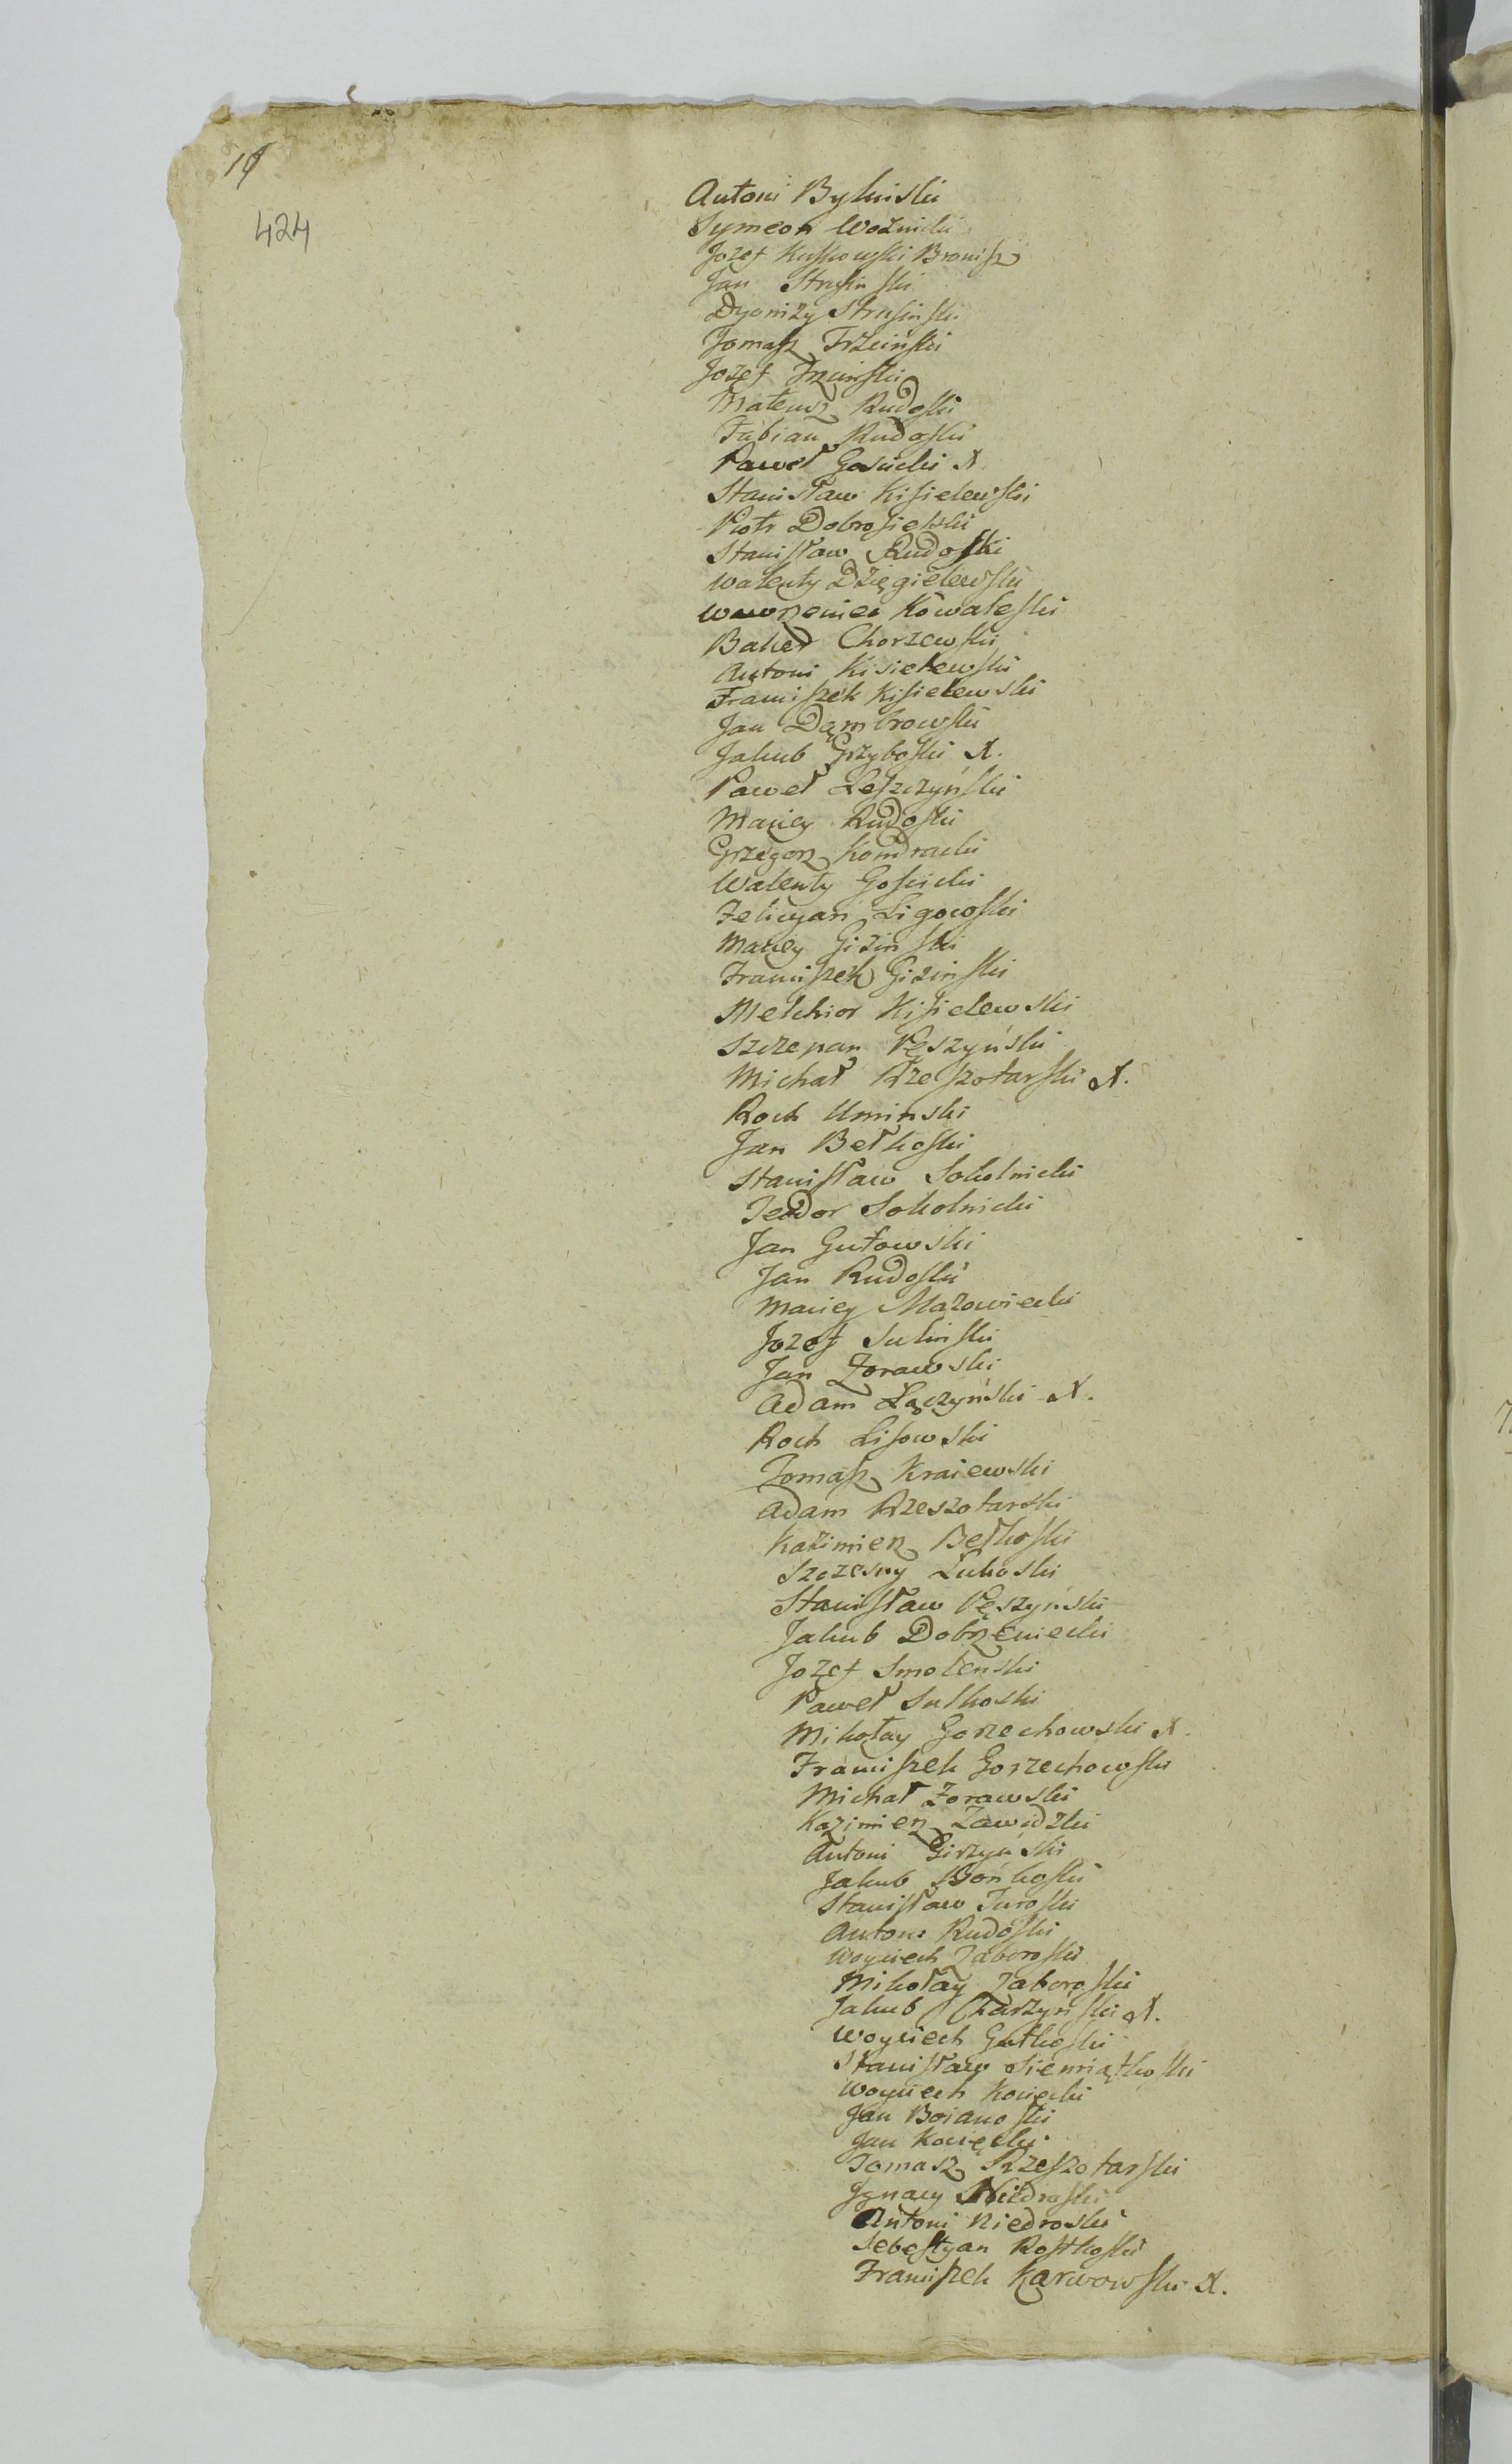 424
Antoni Bykinski
Symeon Woźnicki
Jozef Kuskowski Bronisz
Jan Strusinski
Dyonizy Strusinski
Tomasz Trzcinski
Jozef Trzcinski
Mateusz Rudoski
Fabian Rudoski
Paweł Gościcki X
Stanisław Kisielewski
Piotr Dobrosielski
Stanisław Rudoski
Walenty Dzięgielewski
Wawrzeniec Kowaleski
Balcer Chorzewski
Antoni Kisielewski
Franciszek Kisielewski
Jan Dąmbrowski
Jakub Grzyboski X.
Paweł Leszczyński
Maciey Rudoski
Grzegorz Kondracki
Walenty Gościcki
Felicyan Ligowoski
Maciey Gizinski
Franciszek Gizinski
Melchior Kisielewski
Szczepan Pęszyński
Michał Rzeszotarski X.
Roch Uminski
Jan Bełkoski
Stanisław Sokolnicki
Teodor Sokolnicki
Jan Gutowski
Jan Rudoski
Maciey Mazowiecki
Jozef Sulinski
Jan Zorawski
Adam Łączyński X.
Roch Lisowski
Tomasz Kraiewski
Adam Rzeszotarski
Kazimierz Bełkoski
Szczesny Lukoski
Stanisław Pęszyński
Jakub Dobrzeniecki
Jozef Smolenski
Paweł Sulkoski
Mikołay Gorzechowski X.
Franciszek Gorzechowski
Michał Zorawski
Kazimierz Zawidzki
Antoni Girzyński
Jakub Bońkoski
Stanisław Turoski
Antoni Rudoski
Woyciech Zaboroski
Mikołay Zaboroski
Jakub Charzyński X.
Woyciech Gutkoski
Stanisław Siemiątkoski
Woyciech Kocięcki
Jan Boianoski
Jan Kocięcki
Tomasz Rzeszotarski
Ignacy Niedroski
Antoni Niedroski
Sebestyan Rostkoski
Franciszek Karwowski X.